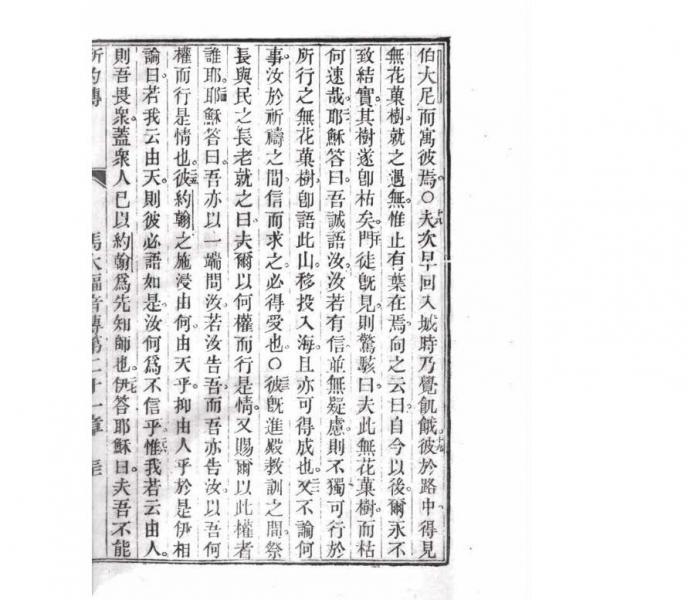 伯大尼而寓彼焉○夫次早回入城時乃覺飢餓彼於路中得見
無花菓樹就之遇無惟止有葉在焉向之云曰自今以後爾永不
致結實其樹遂卽枯矣門徒旣見則驚駭曰夫此無花菓樹而枯
何速哉耶穌答曰吾誠語汝汝若有信並無疑慮則不獨可行於
所行之無花菓樹卽語此山移投入海且亦可得成也又不論何
事汝於祈禱之間信而求之必得受也○彼旣進殿教訓之間祭
長與民之長老就之曰夫爾以何權而行是情又賜爾以此權者
誰耶耶穌答曰吾亦以一端問汝若汝告吾而吾亦告汝以吾何
權而行是情也彼約翰之施浸由何由天乎抑由人乎於是伊相
論曰若我云由天則彼必語如是汝何爲不信乎惟我若云由人
則吾畏衆蓋衆人已以約翰爲先知師也伊答耶穌曰夫吾不能
馬太福音傳第二十一章